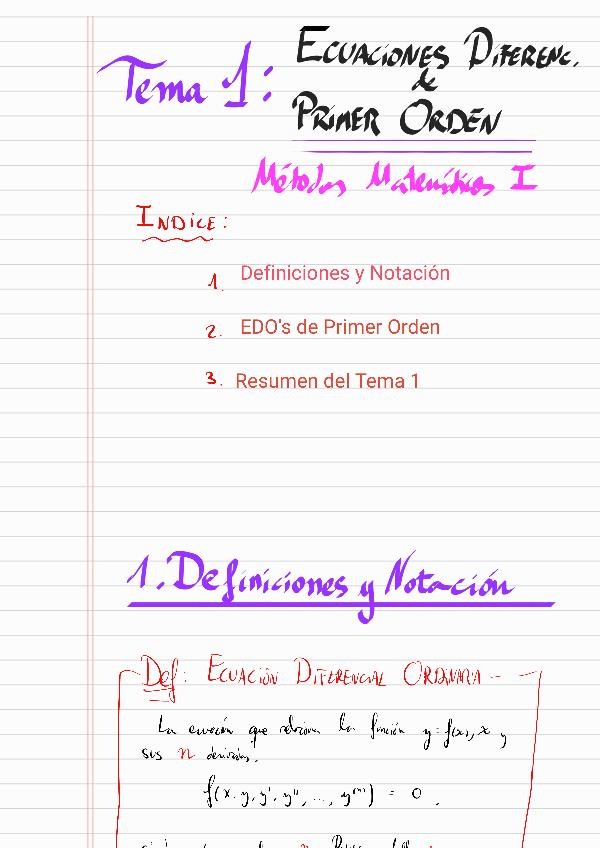 Tema 1: ECUACIONES DIFERENC.
de
PRIMER ORDEN
Métodos Matemáticos I
INDICE:
1. Definiciones y Notación
2. EDO's de Primer Orden
3. Resumen del Tema 1
1. Definiciones y Notación
Def: ECUACIÓN DIFERENCIAL ORDINARIA -
La ecuación que relaciona la función y=f(x), x y
sus n derivadas.
f(x, y, y', y'', ..., y⁽ⁿ⁾) = 0.